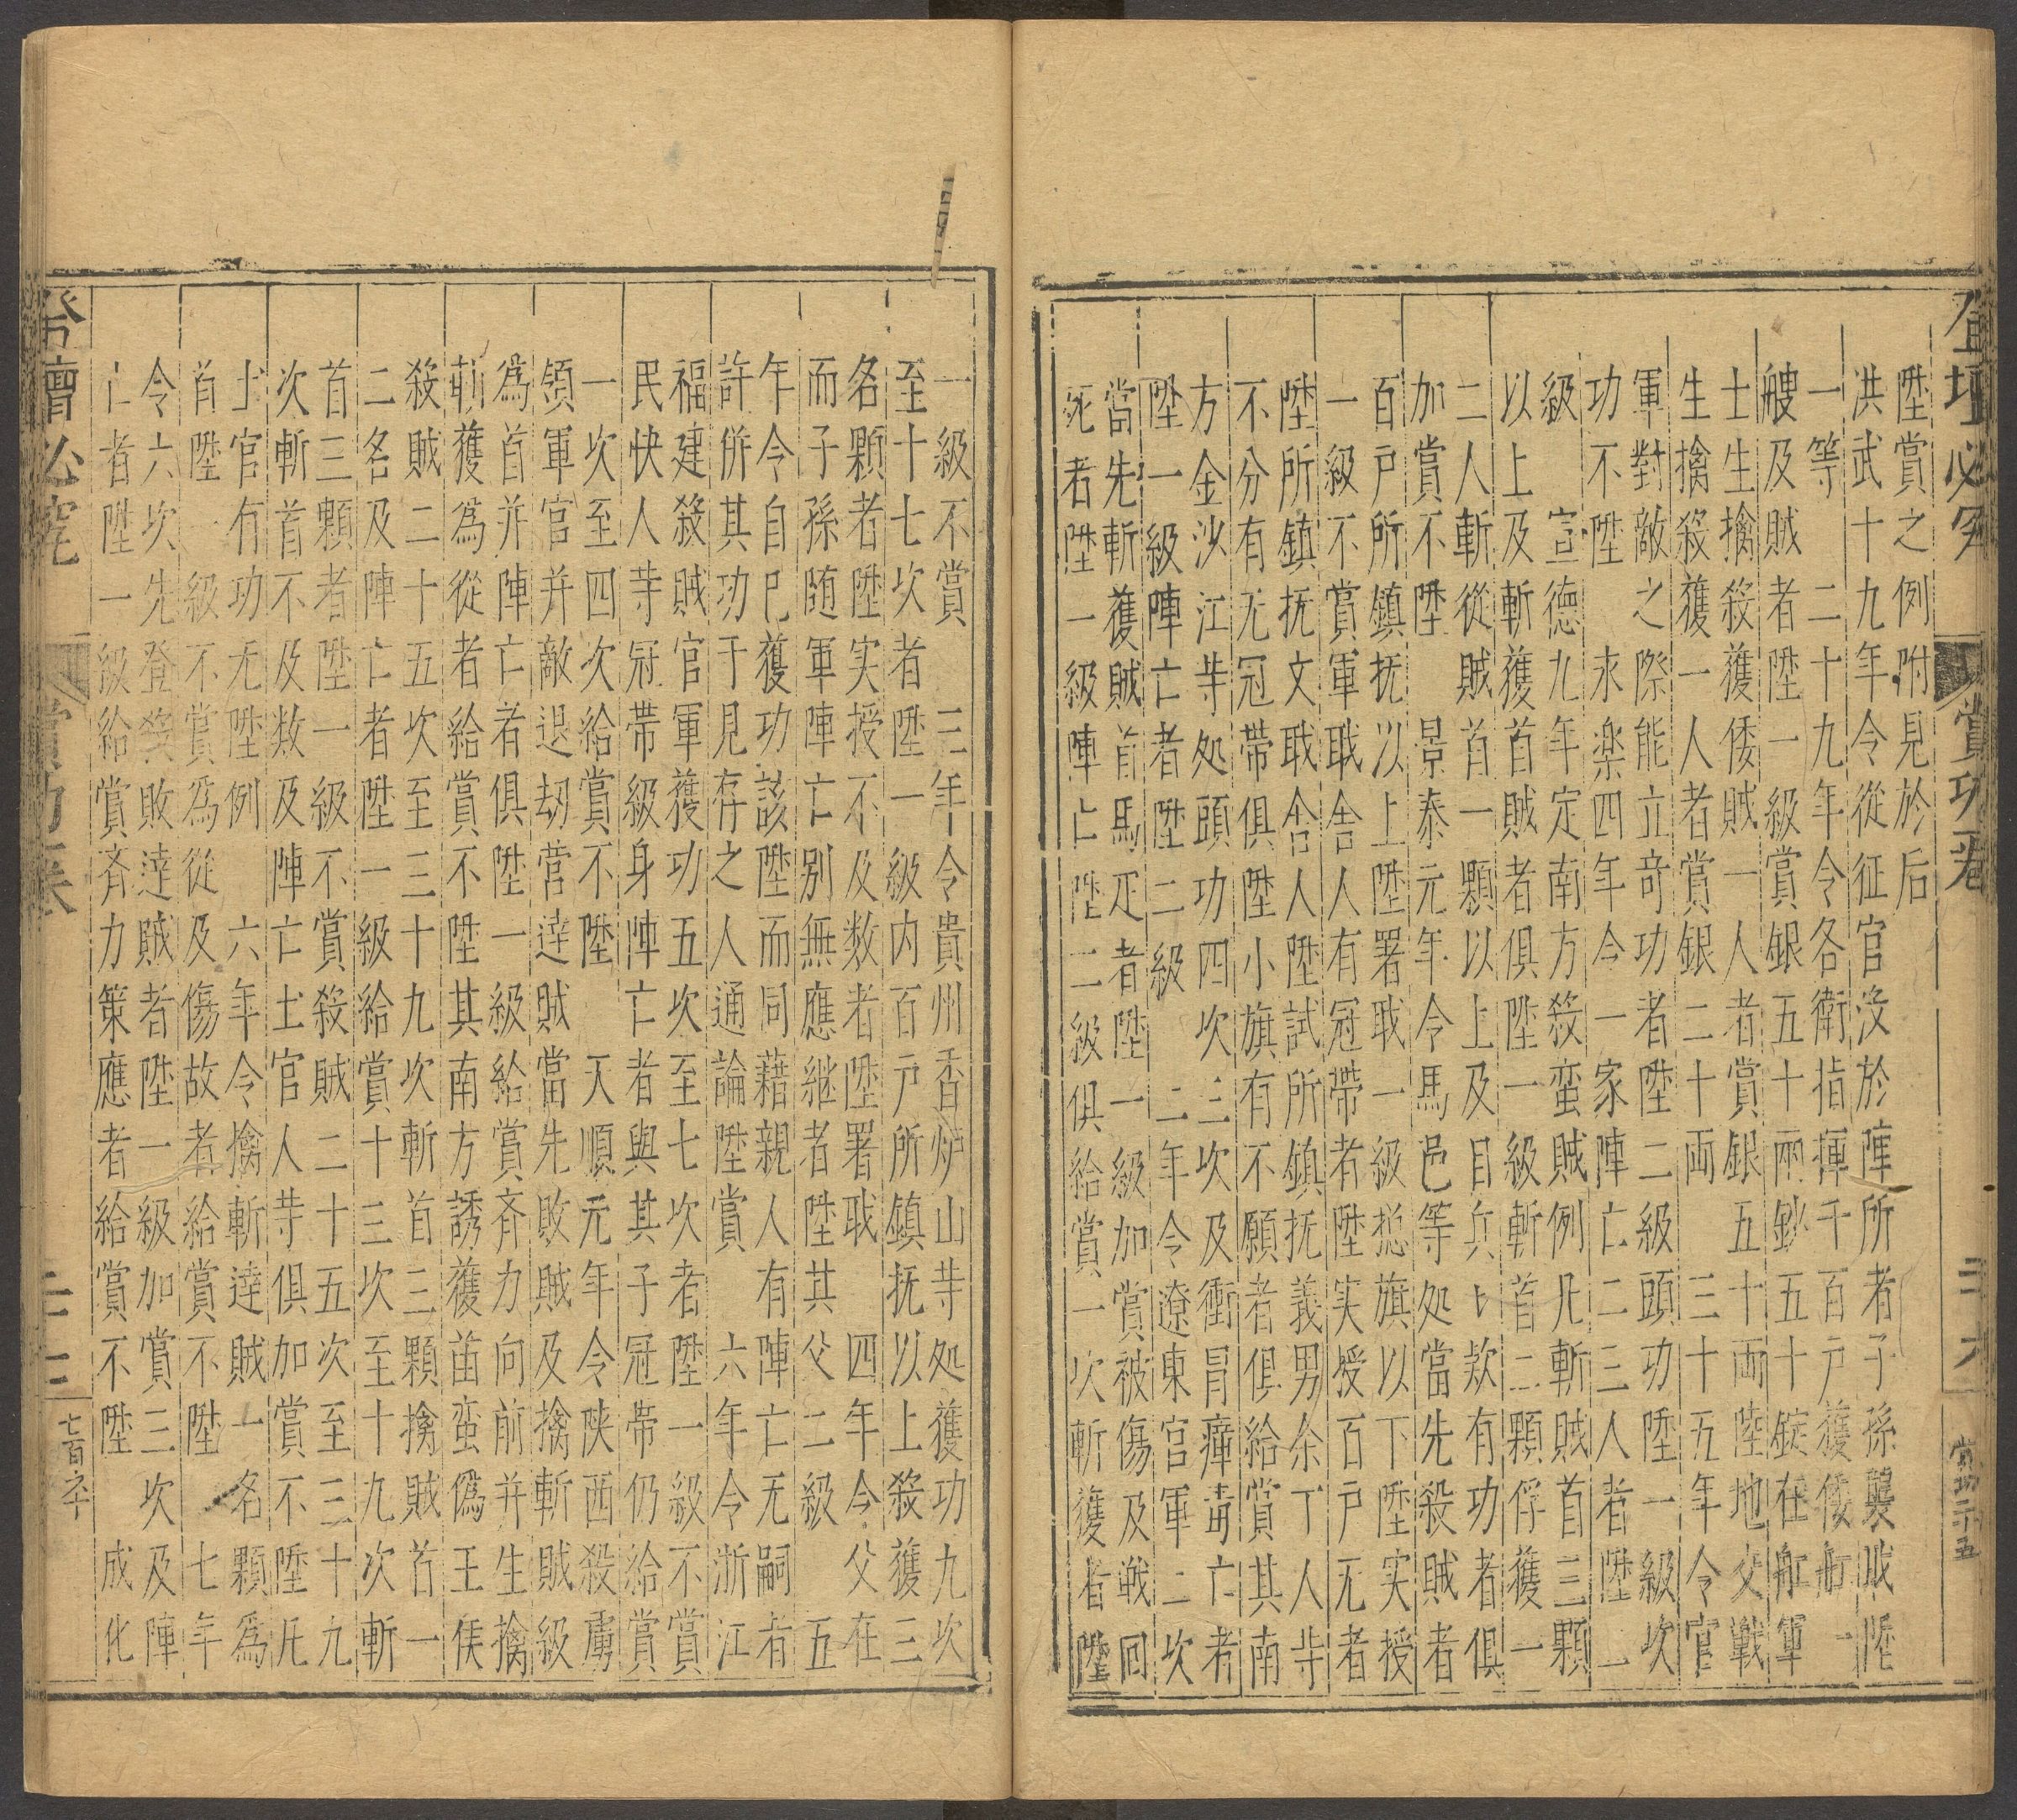 陞賞之例附見於后
洪武十九年令從征官没於陣所者子孫襲戝陞
一等　二十九年令各衛指揮千百戸獲倭舡一
艘及賊者陞一級賞銀五十兩鈔五十錠在舡軍
士生擒殺獲倭賊一人者賞銀五十両陸地交戰
生擒殺獲一人者賞銀二十両　三十五年令官
軍對敵之際能立竒功者陞二級頭功陞一級次
功不陞　永楽四年令一家陣亡二三人者陞一
級　宣徳九年定南方殺蛮賊例凡斬賊首三顆
以上及斬獲首賊者俱陞一級斬首二顆俘獲一
二人斬從賊首一顆以上及目兵上欵有功者俱
加賞不陞　景泰元年令馬邑等処當先殺賊者
百戸所鎮抚以上陞署戝一級捴旗以下陞实授
一級不賞軍戝舎人有冠帶者陞实授百戸无者
陞所鎮抚文戝舎人陞試所鎮抚義男余丁人䓁
不分有无冠帶俱陞小旗有不願者俱給賞其南
方金沙江䓁処頭功四次三次及衝冒瘴毒亡者
陞一級陣亡者陞二級　二年令遼東官軍二次
當先斬獲賊首馬疋者陞一級加賞被傷及戦回
死者陞一級陣亡陞二級俱給賞一次斬獲者陞
登壇必究
賞功
卷
一級不賞　三年令貴州香炉山䓁処獲功九次
至十七次者陞一級内百戸所鎮抚以上殺獲三
名顆者陞实授不及数者陞署戝　四年令父在
而子孫随軍陣亡别無應継者陞其父二級　五
年令自已獲功該陞而同藉親人有陣亡无嗣者
許併其功于見存之人通論陞賞　六年令浙江
福建殺賊官軍獲功五次至七次者陞一級不賞
民快人䓁冠帶級身陣亡者與其子冠帶仍給賞
一次至四次給賞不陞　天順元年令陕西殺虜
領軍官并敵退刼营逹賊當先敗賊及擒斬賊級
為首并陣亡者俱陞一級給賞斉力向前并生擒
斬獲為從者給賞不陞其南方誘獲苗蛮偽王侯
殺賊二十五次至三十九次斬首三顆擒賊首一
二名及陣亡者陞一級給賞十三次至十九次斬
首三顆者陞一級不賞殺賊二十五次至三十九
次斬首不及数及陣亡土官人䓁俱加賞不陞凡
土官有功无陞例　六年令擒斬逹賊一名顆為
首陞一級不賞為從及傷故者給賞不陞　七年
令六次先登殺敗逹賊者陞一級加賞三次及陣
亡者陞一級給賞斉力策應者給賞不陞　成化
登壇必究
賞功
卷
二十三